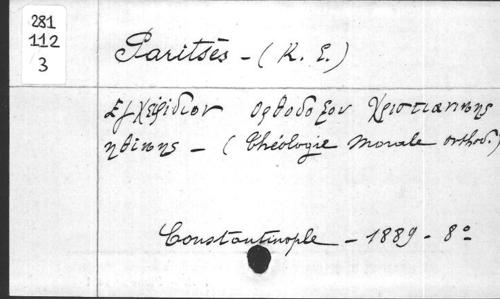 281
112
3
Paritsès - (K. E.)
Εγχειρίδιον Ορθοδοξον Χριστιανικης
ηθικης - (Théologie Morale orthod.)
Constantinople - 1889 - 8º